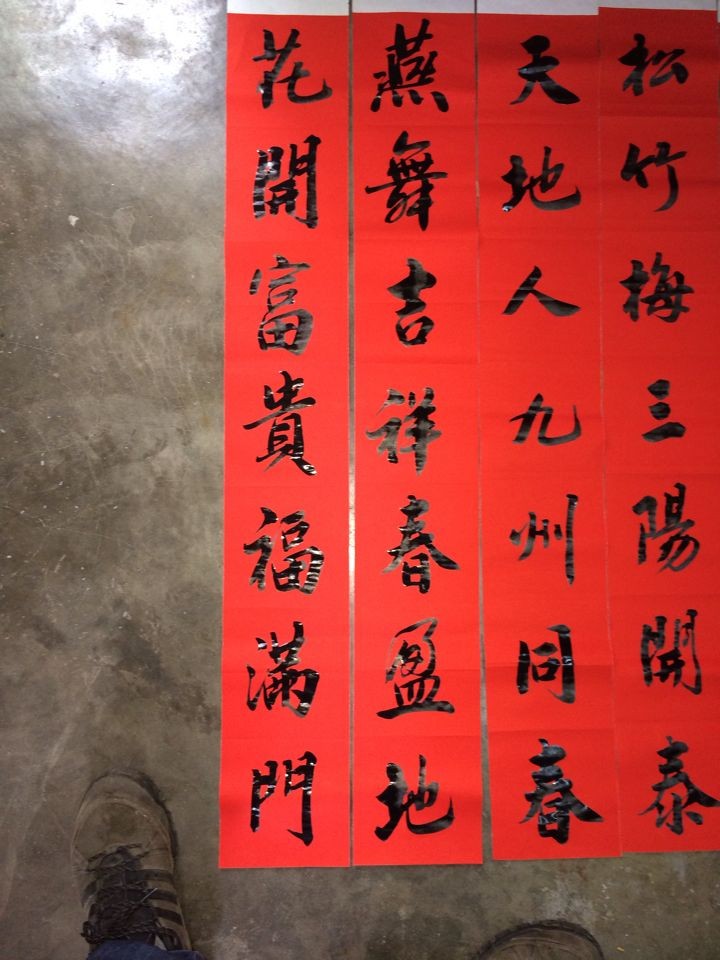 松竹梅三陽開泰
天地人九州同春
燕舞吉祥春盈地
花開富貴福滿門